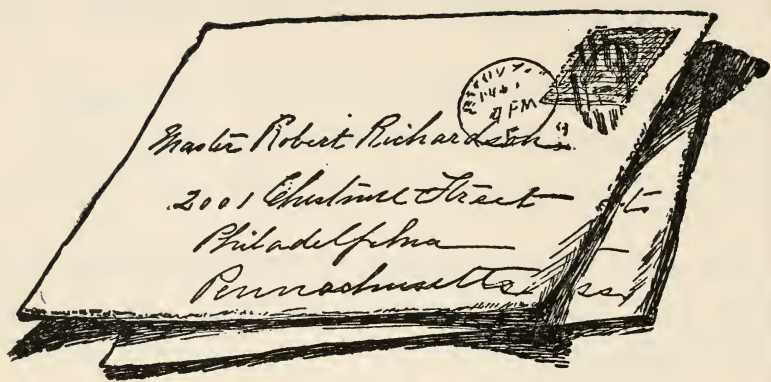 4 PM
Master Robert Richardson
2001 Chestnut Street ts
Philadelphia
Pennachusetts ss